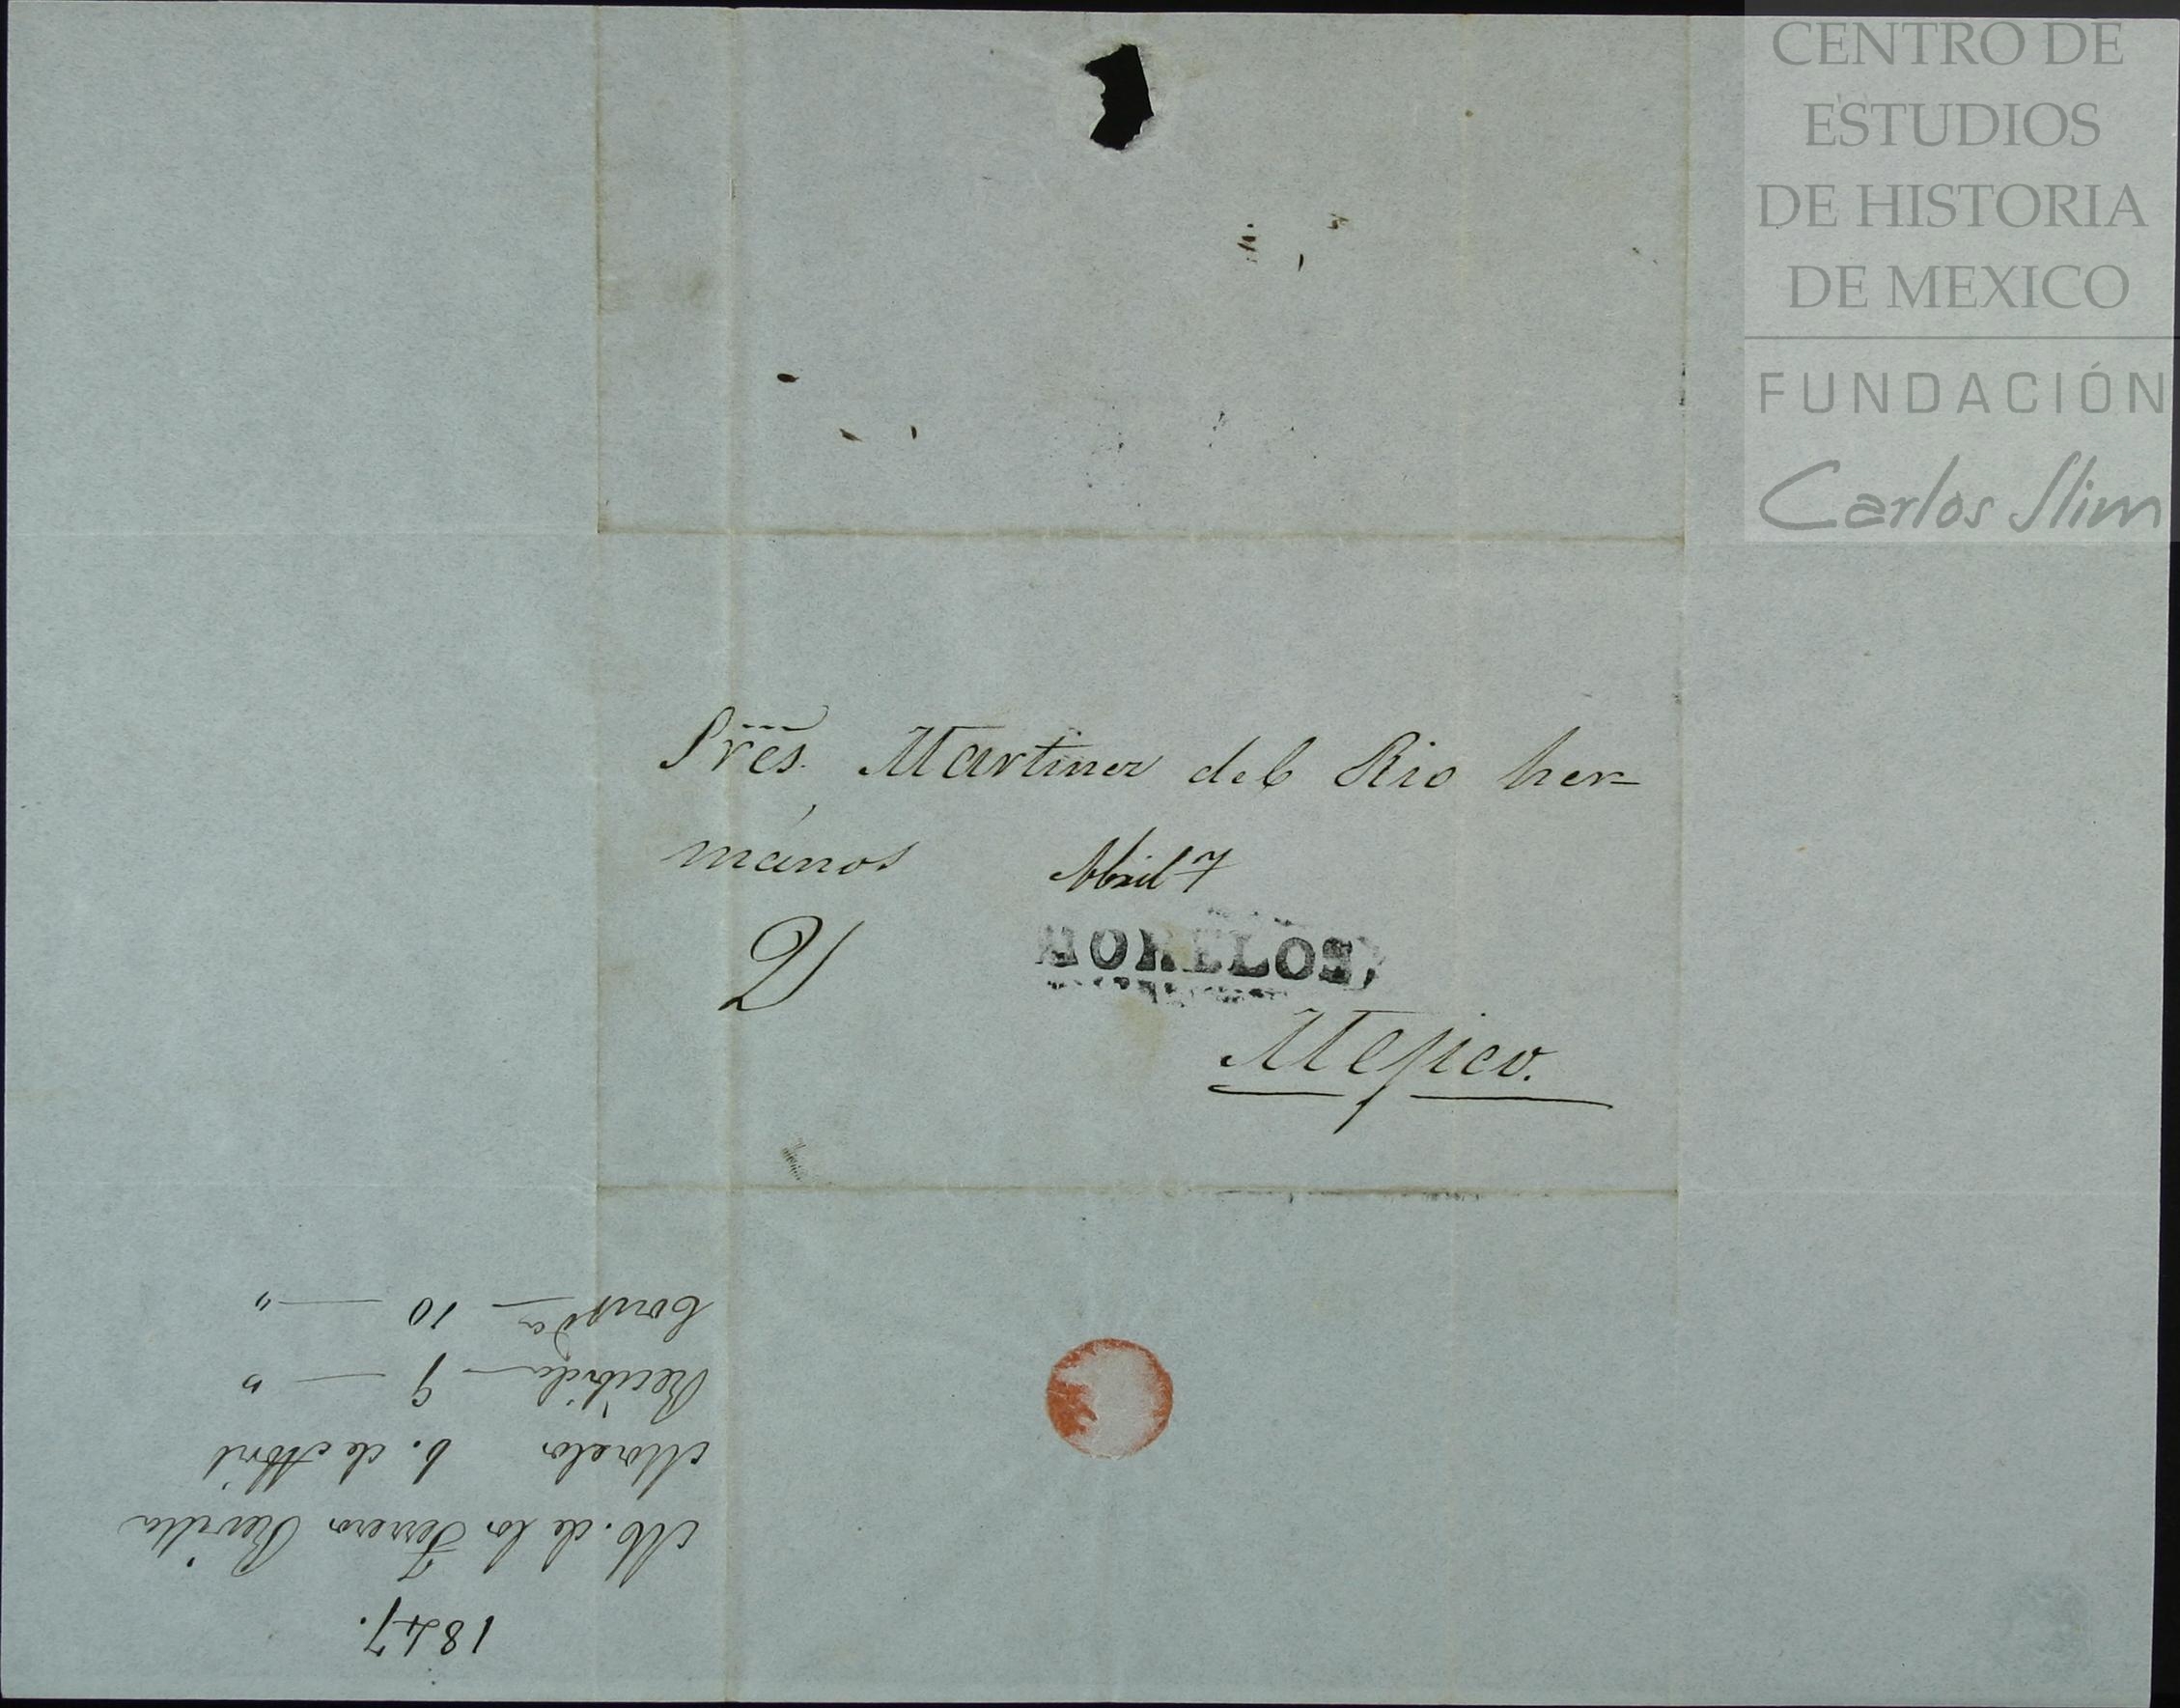 CENTRO DE
ESTUDIOS
DE HISTORIA
DE MEXICO
FUNDACIÓN
Carlos Slim
Sres. Martinez del Rio her-
manos
Abril 7
2
MORELOS
Mejico.
1847.
M. de la Revilla
Morelos 6. de Abril
Recibida 9 — "
Contda — 10 — "